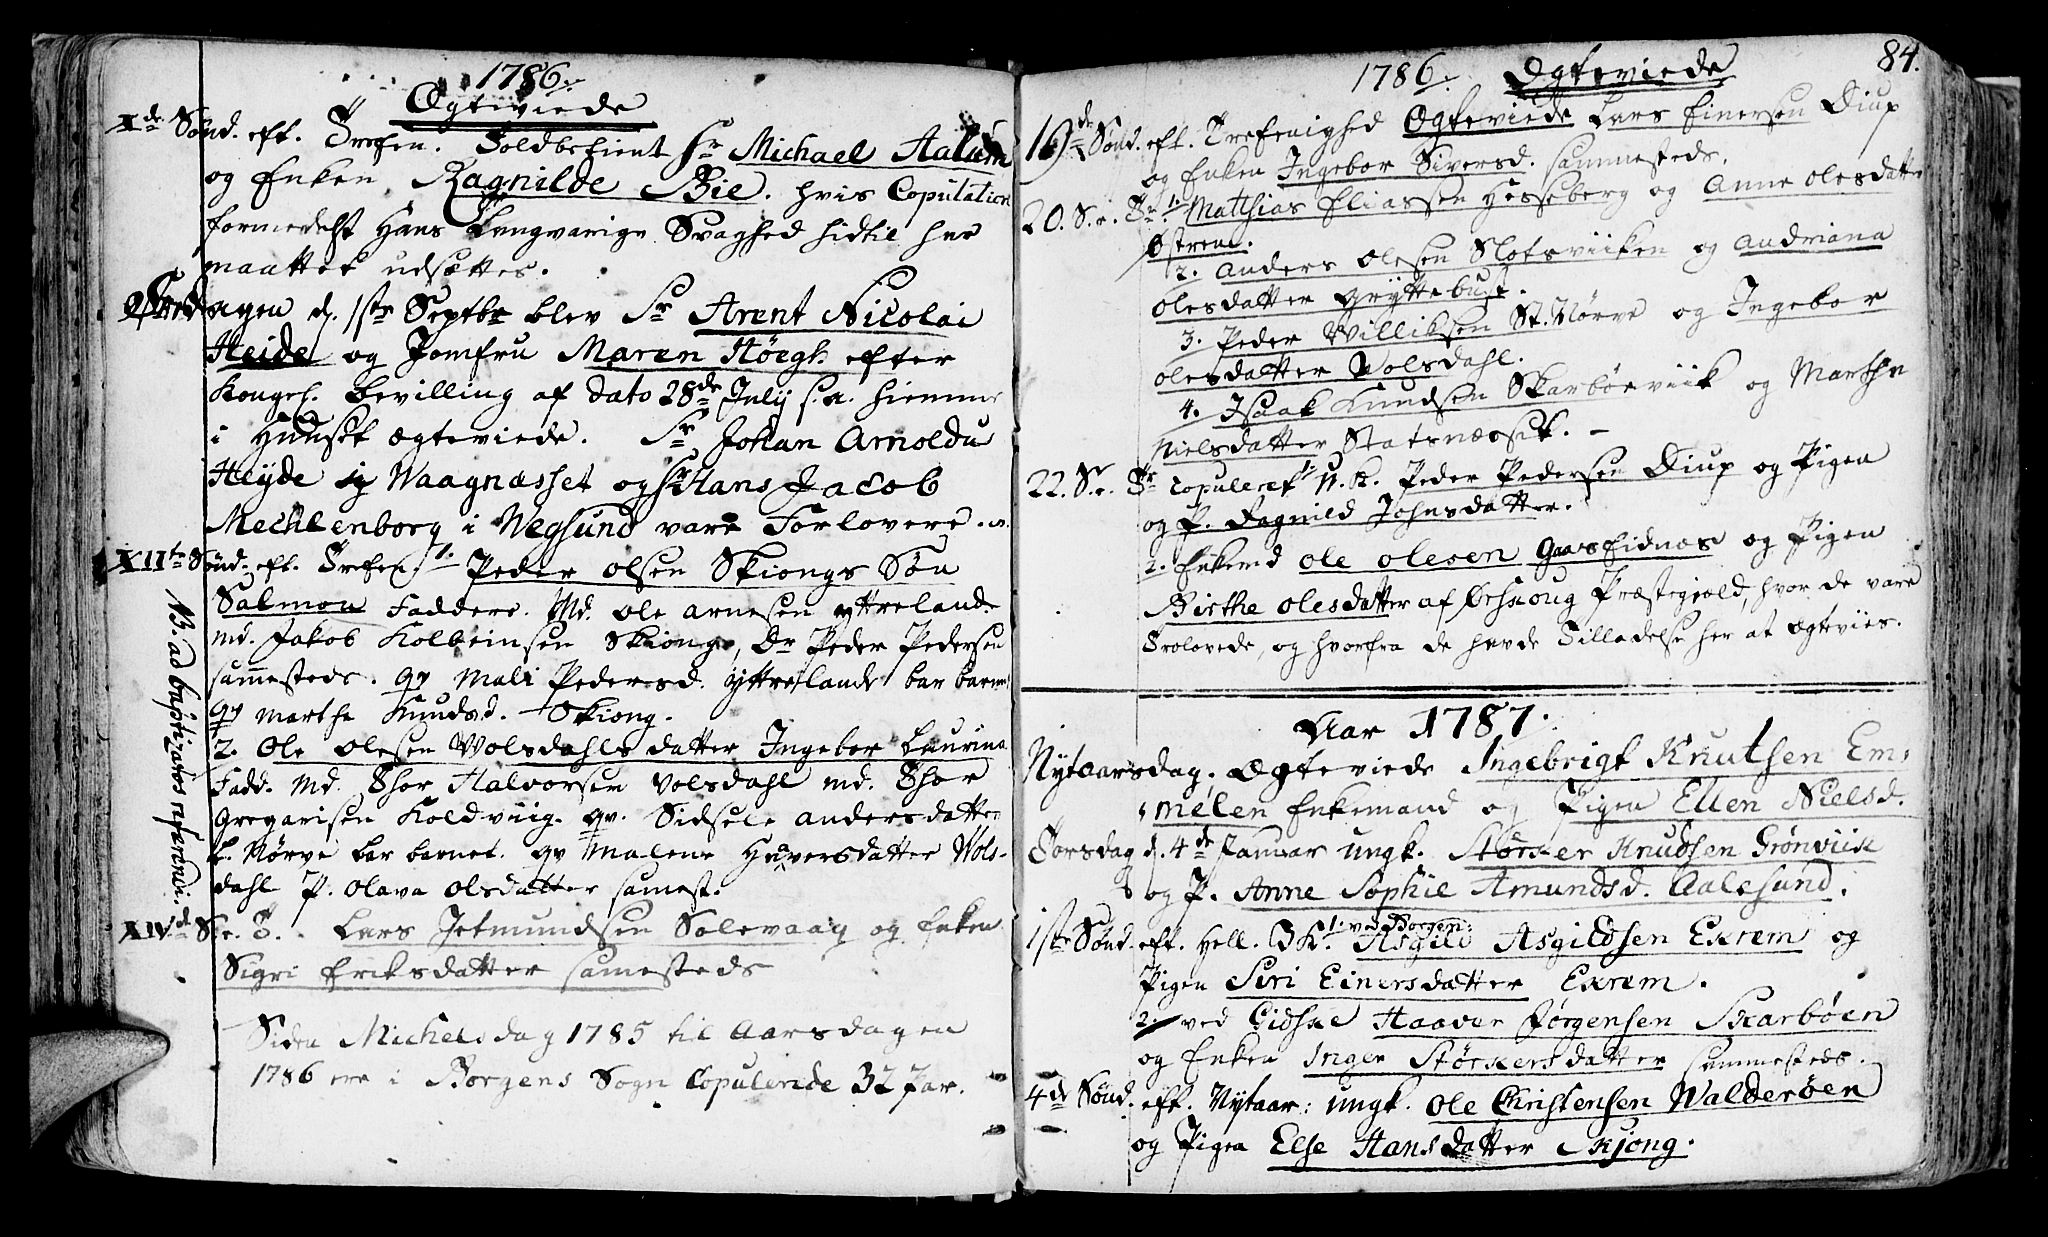 1786.
Ægteviede
Xde Sønd. eft. Trefen. Toldbetient Sr Michael Aalum
og Enken Ragnilde Bie. hvis Copulation
formedelst Hans Langvarige Svaghed hidtil har
maattet udsættes.
Fredagen d. 1ste Septbr blev Sr Arent Nicolai
Heide og Jomfru Maren Høegh efter
Kongel. Bevilling af dato 28de July s. a. hiemme
i Huuset ægteviede. Sr Johan Arnoldu
Heyde i Waagnæsset og Sr Hans Jacob
Mechlenborg i Wegsund vare Forlovere.
XIIte Sønd. eft. Trefen. 1. Peder Olsen Skiongs Søn
Salmon Faddere. Md. Ole Arnesen Yttrelande
md. Jakob Kolbeinsen Skiong, Dr Peder Pedersen
sammesteds. qv Mali Pedersd. Yttrelande bar barnet
qv Marthe Knudsd. Skiong.
2. Ole Olesen Wolsdahls datter Ingebor Laurina
Fadd. Md. Thor Halvorsen Volsdahl md. Thor
Gregarisen Koldviig. qv. Sidsele Andersdatter
L. Nørve bar barnet. qv Malene Haversdatter Wols-
dahl P. Olava Olsdatter samest.
NB. ad baptizatos referendi.
XIVde S. e. T. Lars Jetmundsen Solevaag og Enken
Sigri Eriksdatter samesteds
Siden Michelsdag 1785 til Aarsdagen
1786 ere i Borgens Sogn Copulerede 32 Par.
1786. Ægteviede 84.
19de Sønd. eft. Trefenighed Ægteviede Lars Einersen Diup
og Enken Ingebor Siversd. sammesteds.
20. S. e. Tr. 1. Matthias Eliassen Hesseberg og Anne Olesdatter
Østrem.
2. Anders Olesen Slotsviiken og Andriana
Olesdatter Gryttebust.
3. Peder Williksen St. Nørve og Ingebor
Olesdatter Volsdahl.
4. Isaak Knudsen Skarbøeviik og Marthe
Nielsdatter Statsnæsset.
22. S. e. Tr. Copuleret 1. U. K. Peder Pedersen Diup og Pigen
og P. Dagnild Johnsdatter.
2. Enkemd Ole Olesen Gaaseidnæs og Pigen
Birthe Olesdatter af Ørskoug Præstegield, hvor de vare
Trolovede, og hvorfra de havde Tilladelse her at ægtevies.
Aar 1787.
Nytaarsdag. Ægteviede Ingebrigt Knutsen Em-
melen Enkemand og Pigen Ellen Nielsd.
Torsdag d. 4de Januar ungk. Størker Knudsen Grønviik
og P. Anne Sophie Amundsd. Aalesund.
1ste Sønd. eft. Hell. 3 K. 1. ved Borgen: Asgild Asgildsen Exrem og
Pigen Siri Einersdatter Exrem.
2. ved Gidske Haaver Jørgensen Skarbøen
og Enken Inger Størkersdatter sammesteds.
4de Sønd. eft. Nytaar: ungk. Ole Christensen Walderøen
og Pigen Else Hansdatter Skjong.